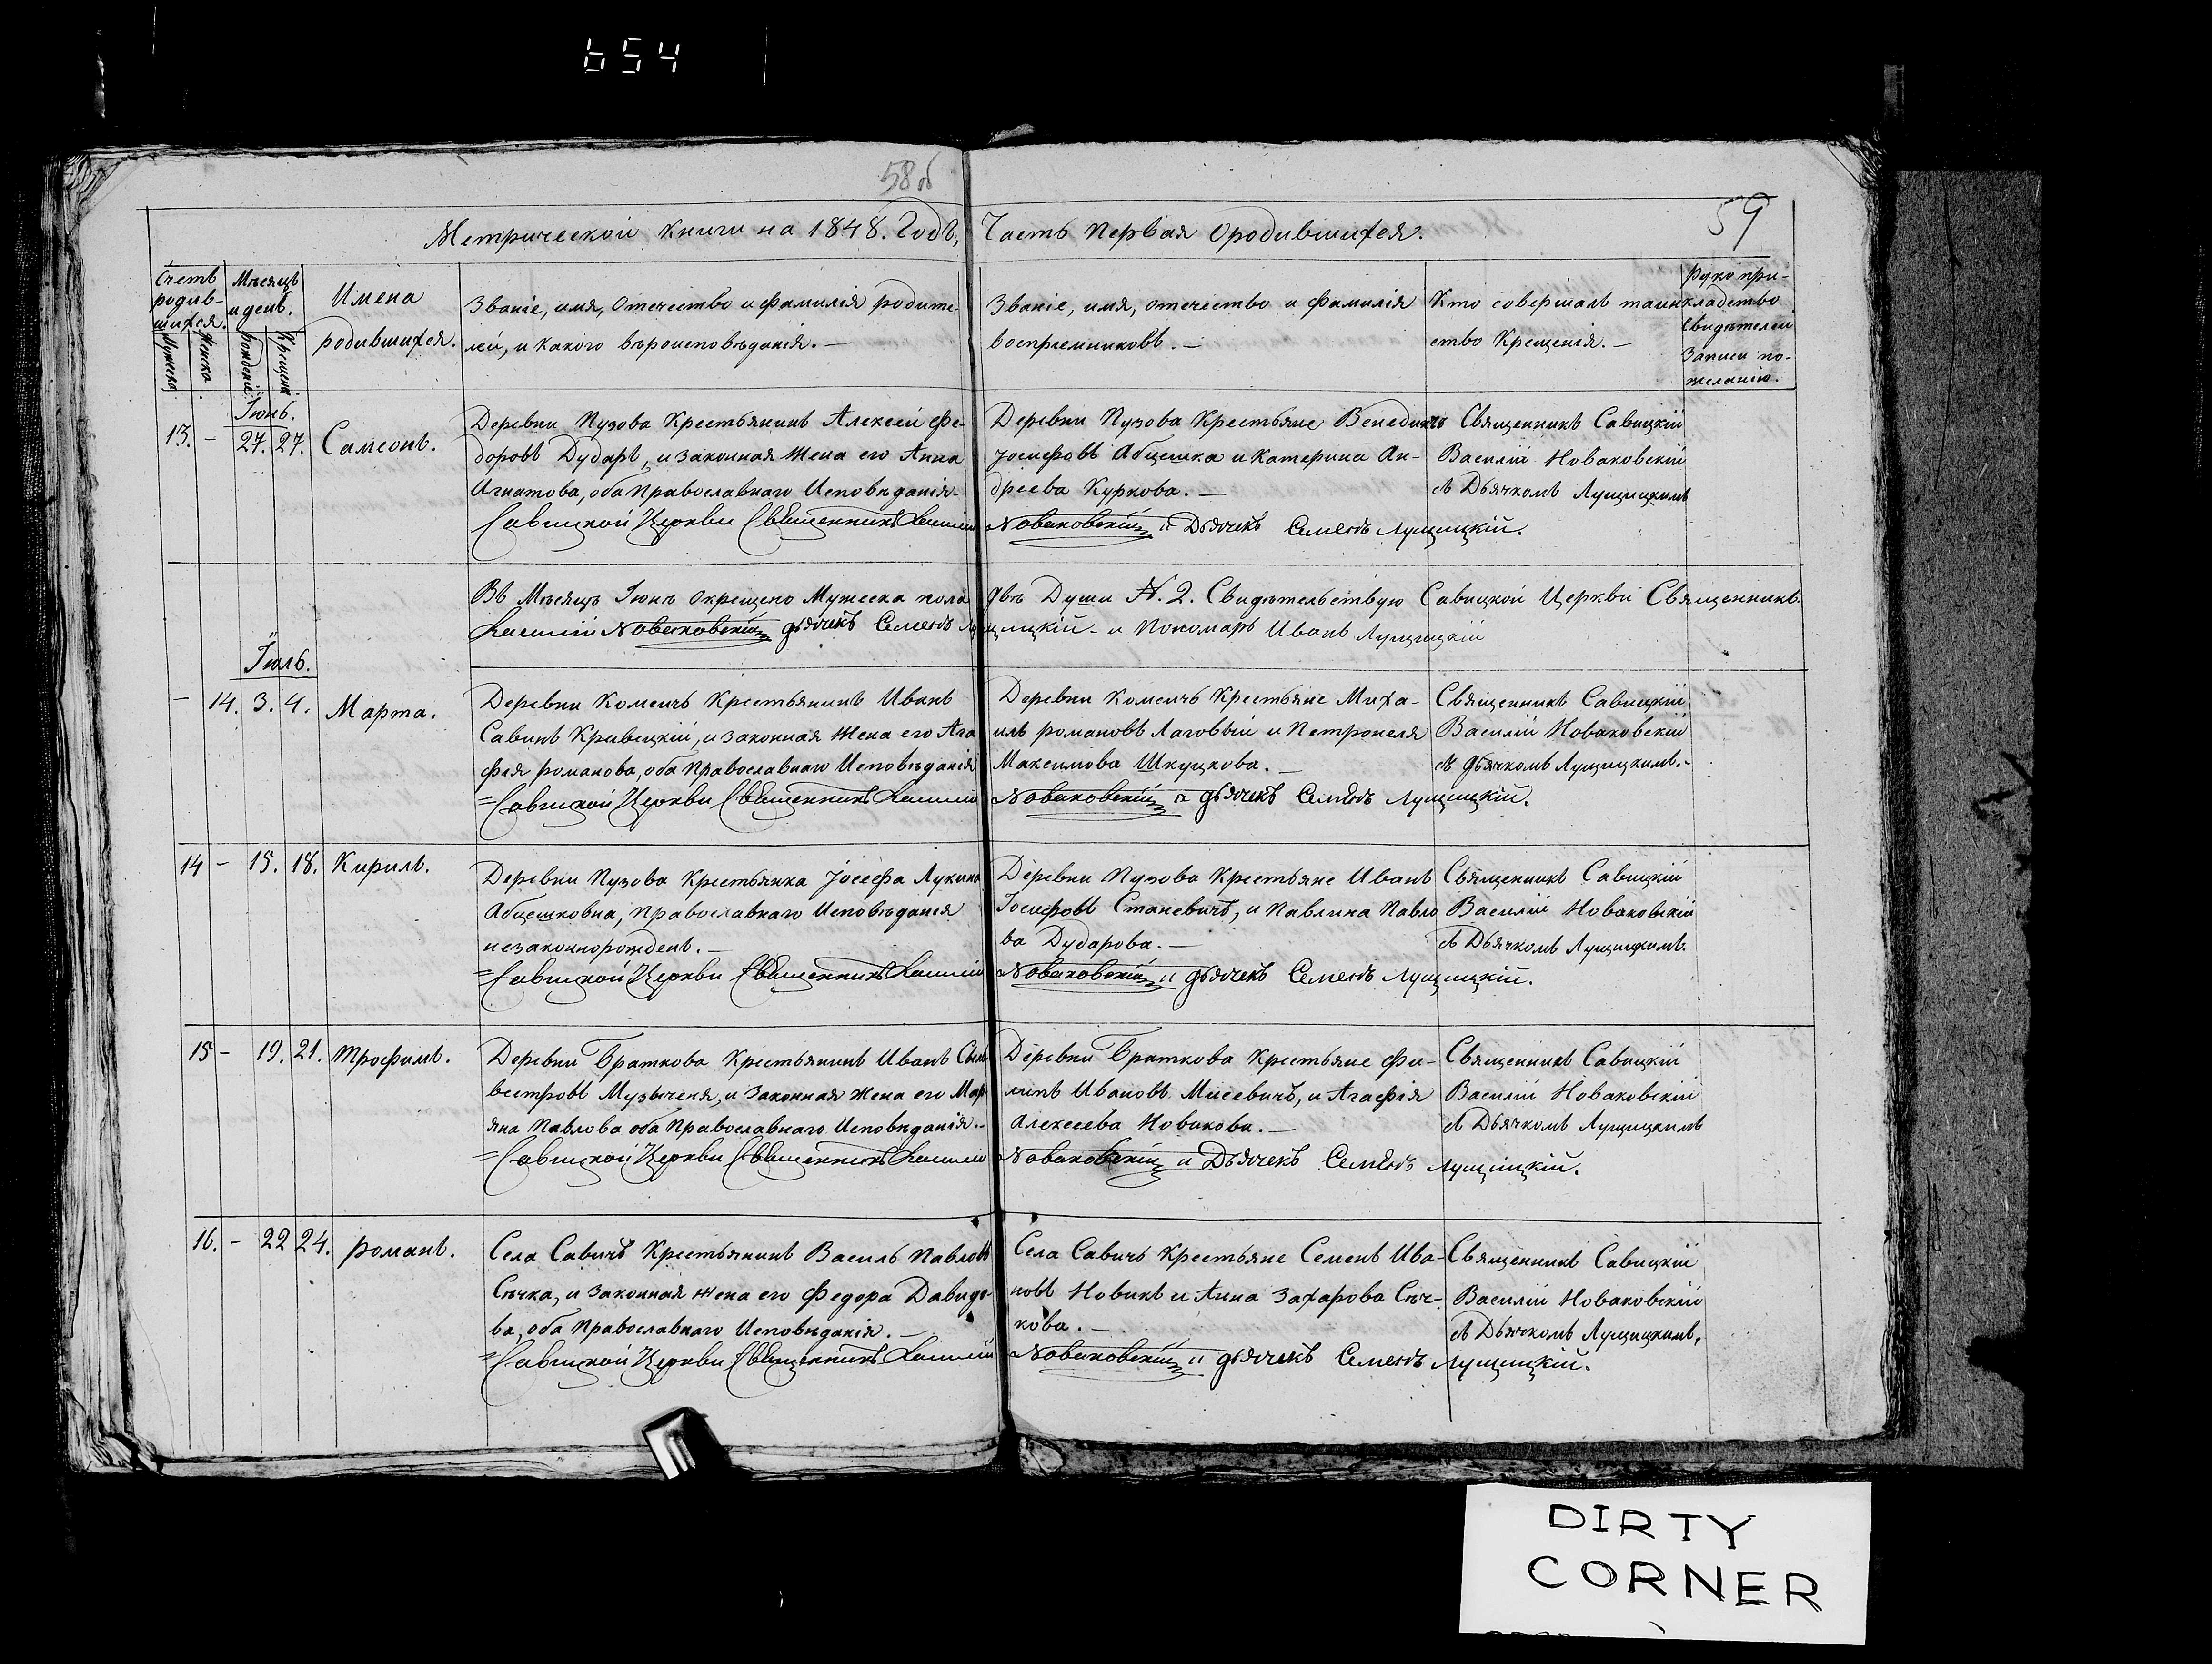 654
58об
59
Метрической книги на 1848. Годъ, Часть Первая Ородившихся.
Счетъ родив-шихся.
Мужеска
Женска
Мѣсяцъ и день.
Рожденія
Крещенія
Имена родившихся.
Званіе, имя, Отечество и фамилія родите-
лей, и какого вѣроисповѣданія.—
Званіе, имя, отечество и фамилія
воспріемниковъ.—
Кто совершалъ таин-
ство Крещенія.—
Рукопри-
кладство
Свидѣтелей
Записи по-
желанію.
Іюнь.
13. - 27. 27. Самсонъ.
Деревни Пузова Крестьянинъ Алексей Фе-
доровъ Дударъ, и законная Жена его Анна
Игнатова, оба Православнаго Исповѣданія.
Деревни Пузова Крестьяне Венедиктъ
Іосифовъ Абцешка и Катерина Ан-
дреева Куркова.—
Священникъ Савицкій
Василій Новаковскій
съ Дьячкомъ Лущицкимъ
Савицкой Церкви Священникъ Василій Новаковскій и Дьячекъ Семенъ Лущицкій.
Въ Мѣсяцѣ Іюнѣ Окрещено Мужеска пола двѣ Души N. 2. Свидѣтельствую Савицкой Церкви Священникъ
Василій Новаковскій дьячекъ Семенъ Лущицкій - и Пономарь Иванъ Лущицкій
Іюль.
- 14. 3. 4. Марта.
Деревни Комсичъ Крестьянинъ Иванъ
Савинъ Кривецкій, и законная Жена его Ага
фія романова, оба Православнаго Исповѣданія
Деревни Комсичъ Крестьяне Миха-
илъ романовъ Лаговый и Петронеля
Максимова Шкуцкова.—
Священникъ Савицкій
Василій Новаковскій
съ дьячкомъ Лущицкимъ.-
=Савицкой Церкви Священникъ Василій Новаковскій и дьячекъ Семенъ Лущицкій.
14 - 15. 18. Кирилъ.
Деревни Пузова Крестьянка Іосефа Лукина
Абцешковна, Православнаго Исповѣданія
незаконнорожденъ.—
Деревни Пузова Крестьяне Иванъ
Іосифовъ Станевичъ, и Павлина Павло
ва Дударова.—
Священникъ Савицкій
Василій Новаковскій
съ Дьячкомъ Лущицкимъ.
=Савицкой Церкви Священникъ Василій Новаковскій и дьячекъ Семенъ Лущицкій.
15 - 19. 21. Трофимъ.
Деревни Браткова Крестьянинъ Иванъ Силь
вестровъ Музыченя, и Законная Жена его Мар
яна Павлова оба Православнаго Исповѣданія..
Деревни Браткова Крестьяне Фи-
липъ Ивановъ Мисевичъ, и Агафія
Алексеева Новикова.—
Священникъ Савицкій
Василій Новаковскій
съ Дьячкомъ Лущицкимъ
=Савицкой Церкви Священникъ Василій Новаковскій и Дьячекъ Семенъ Лущицкій.
16. - 22 24. романъ.
Села Савичъ Крестьянинъ Василь Павловъ
Сѣчка, и Законная Жена его Федора Давидо-
ва, оба Православнаго Исповѣданія.—
Села Савичъ Крестьяне Семенъ Ива-
новъ Новикъ и Анна Захарова Сѣч-
кова.—
Священникъ Савицкій
Василій Новаковскій
съ Дьячкомъ Лущицкимъ,
=Савицкой Церкви Священникъ Василій Новаковскій и дьячекъ Семенъ Лущицкій.
DIRTY
CORNER